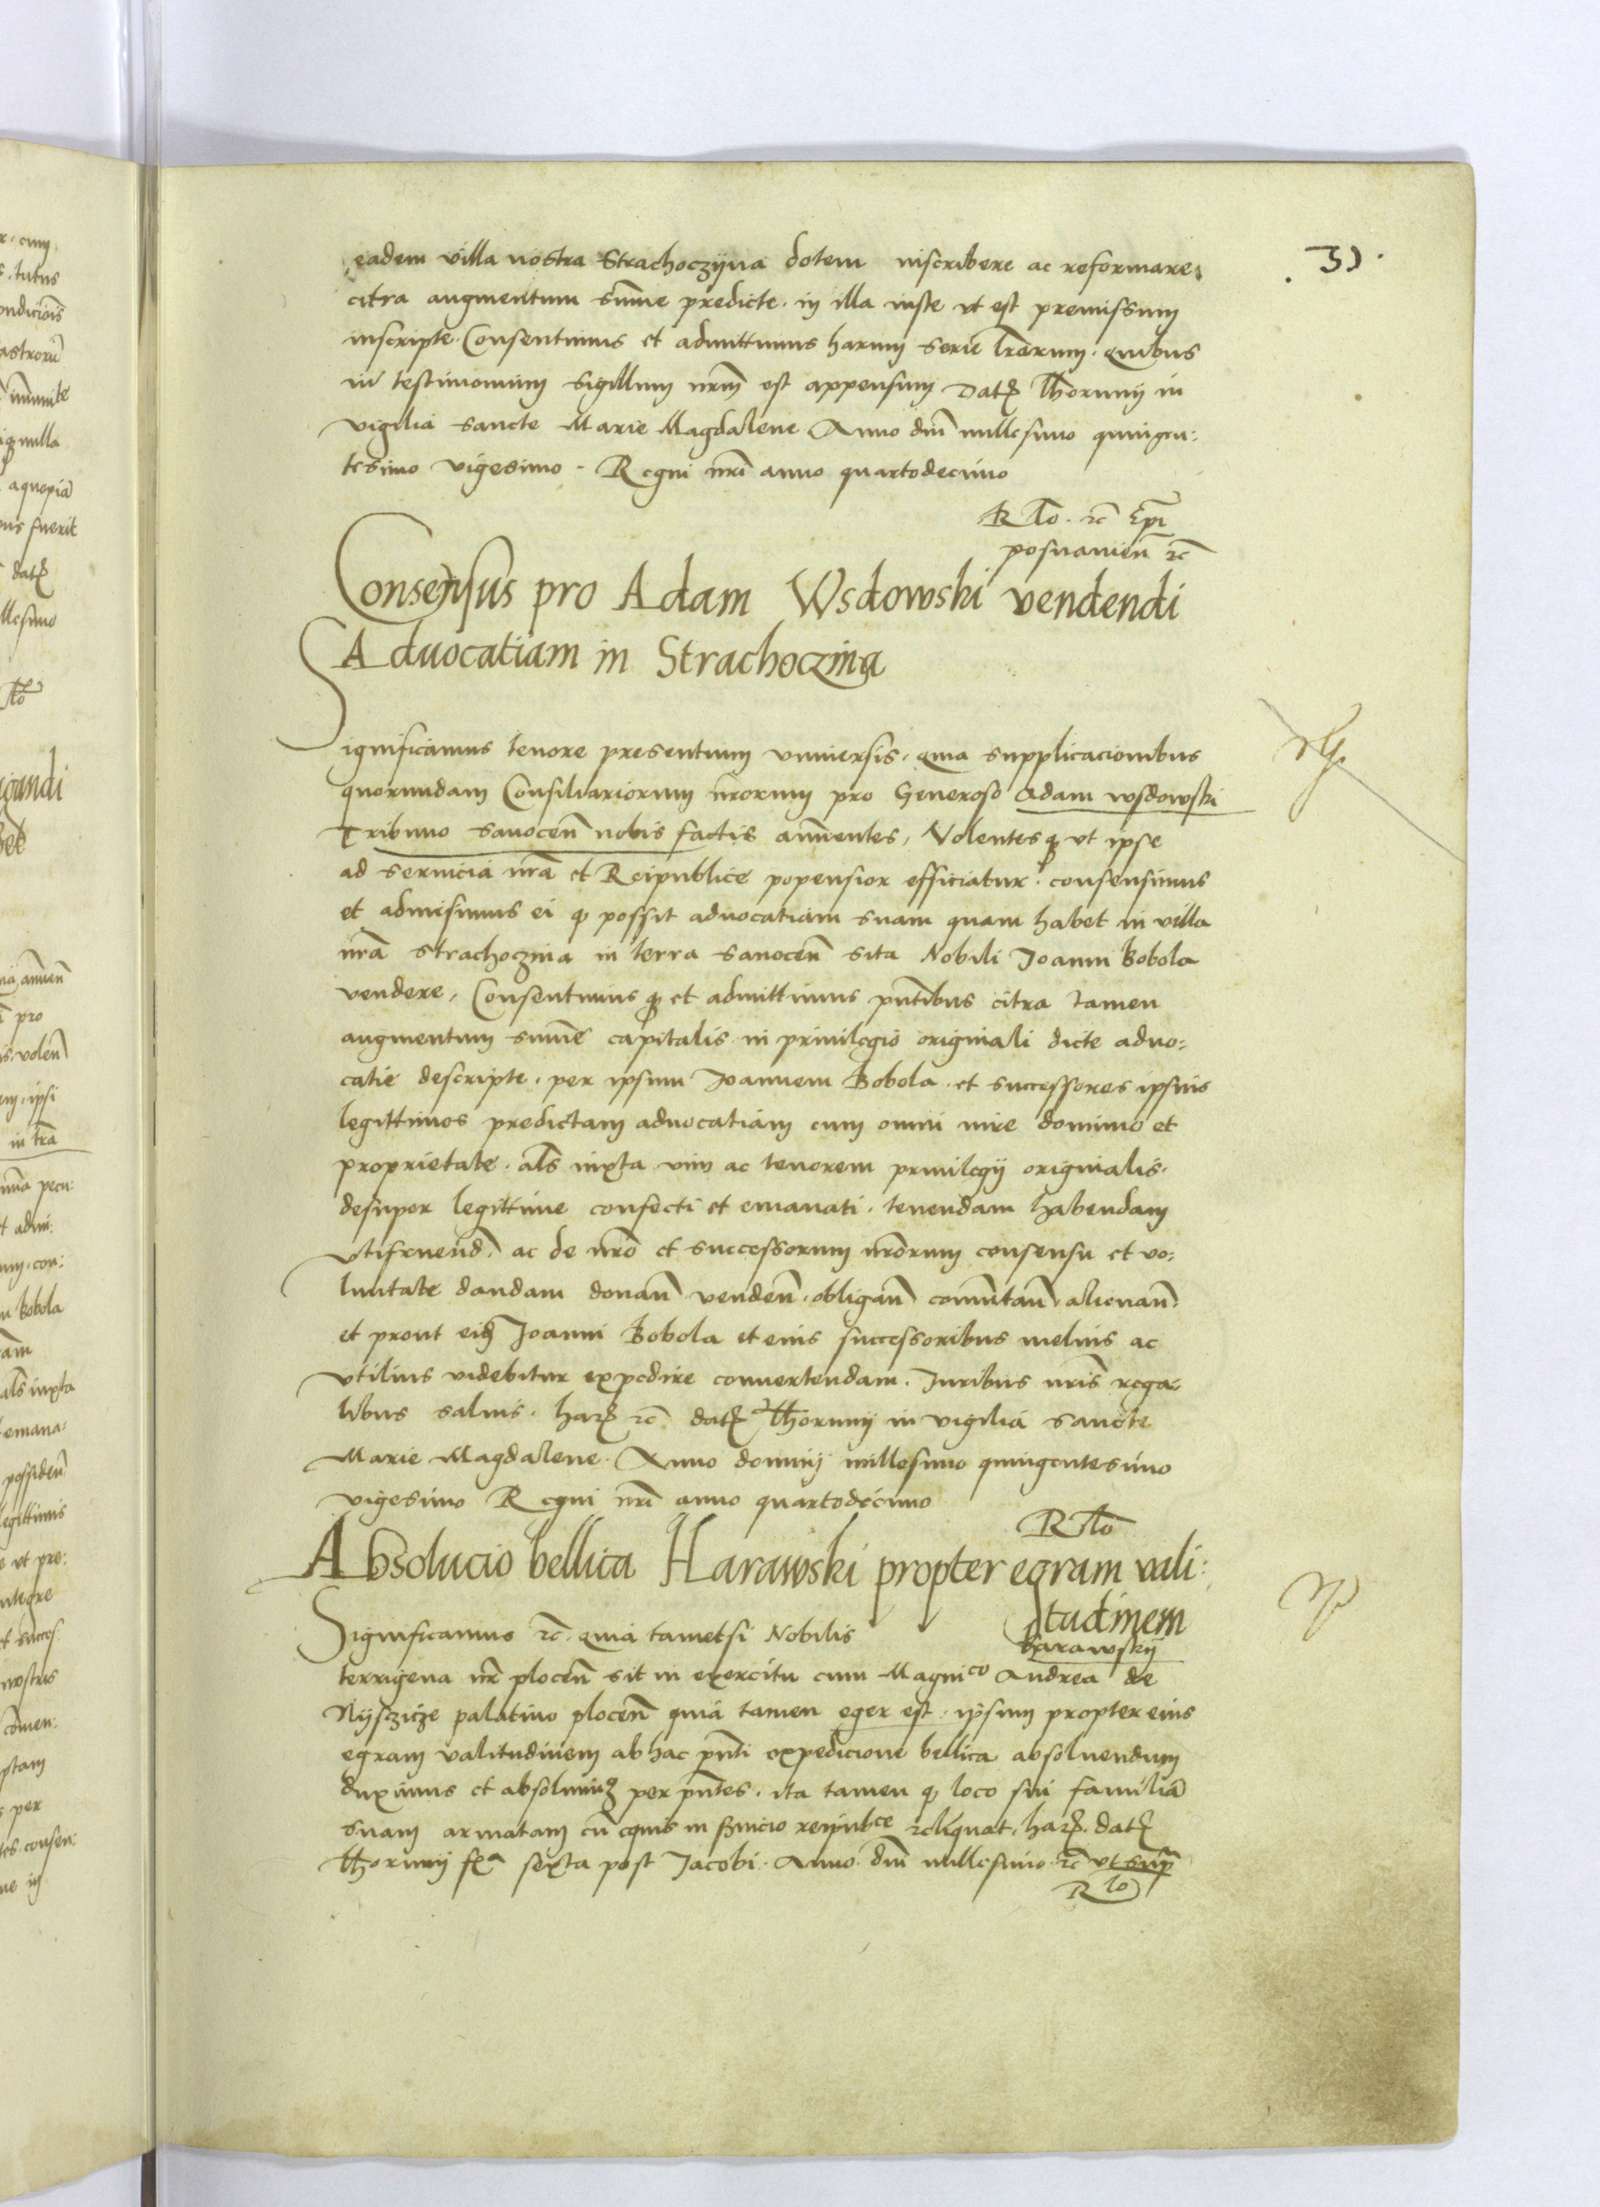 39.
eadem villa nostra Strachoczyna dotem inscribere ac reformare
citra augmentum sum̄e predicte in illa iuste ut est premissum
inscripte Consentimus et admittimus harum serie lr̄arum quibus
in testimonium sigillum nr̄m est appensum Dat̄ Thorunij in
vigilia sancte Marie Magdalene Anno dnī millesimo quingen:
tesimo vigesimo Regni nrī anno quartodecimo
Rlō rc̄ Epī
posnanien̄ rc̄
Consensus pro Adam Wsdowski vendendi
Advocatiam in Strachoczina
Significamus tenore presentium universis quia supplicacionibus
quorundam Consiliariorum nrorum pro Generoso Adam wsdowski
Tribuno sanocen̄ nobis factis an̄uentes, Volentesq̄ ut ipse
ad servicia nrā et Reipublice popensior efficiatur consensimus
et admisimus ei q̄ possit advocatiam suam quam habet in villa
nrā Strachoczina in terra sanocen̄ sita Nobili Joanni Bobola
vendere, Consentimus q̄ et admittimus pn̄tibus citra tamen
augmentum sum̄e capitalis in privilegio originali dicte advo:
catie descripte per ipsum Joannem Bobola et successores ipsius
legittimos predictam advocatiam cum omni iure dominio et
proprietate als̄ iuxta vim ac tenorem privilegij originalis
desuper legittime confecti et emanati tenendam habendam
utifruend̄ ac de nrō et successorum nrōrum consensu et vo:
luntate dandam donan̄ venden̄ obligan̄ com̄utan̄ alienan̄
et prout eid̄ Joanni Bobola et eius successoribus melius ac
utilius videbitur expedire convertendam Juribus nrīs rega:
libus salvis har̄ rc̄ dat̄ Thorunij in vigilia sancte
Marie Magdalene Anno dominij millesimo quingentesimo
vigesimo Regni nrī anno quartodecimo
Rlō
Absolucio bellica Harawski propter egram vali:
tudinem
Significamus rc̄ quia tametsi Nobilis harawskij
terrigena nr̄ plocen̄ sit in exercitu cum Magnico Andrea de
Nijszicze palatino plocen̄ quia tamen eger est ipsum propter eius
egram valitudinem ab hac pn̄ti expedicione bellica absolvendum
duximus et absolvimus per pn̄tes ita tamen q̄ loco sui familiā
suam armatam cū equis in s̄vicio reipubce relīquat har̄ dat̄
Thorunij fr̄a sexta post Jacobi Anno dnī millesimo rc̄ ut sup̄
Rlō